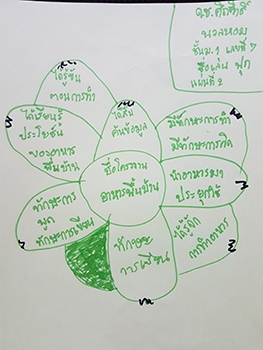 ด.ช.ศักดิ์ศักดิ์
หวลหอม
ชั้นม.1 เลขที่ 7
ชื่อเล่น ฟุก
แผ่นที่ 2
ได้รู้ขั้น
ตอนการทำ
ได้สืบ
ค้นข้อมูล
ได้เรียนรู้
ประโยชน์
ของอาหาร
พื้นบ้าน
มีทักษะการทำ
มีทักษะการคิด
ชื่อโครงงาน
อาหารพื้นบ้าน
นำอาหารมา
ประยุกใช้
ทักษะการ
พูด
ทักษะการเขียน
ทักษะ
การเขียน
ได้รู้จัก
การทำอาหาร